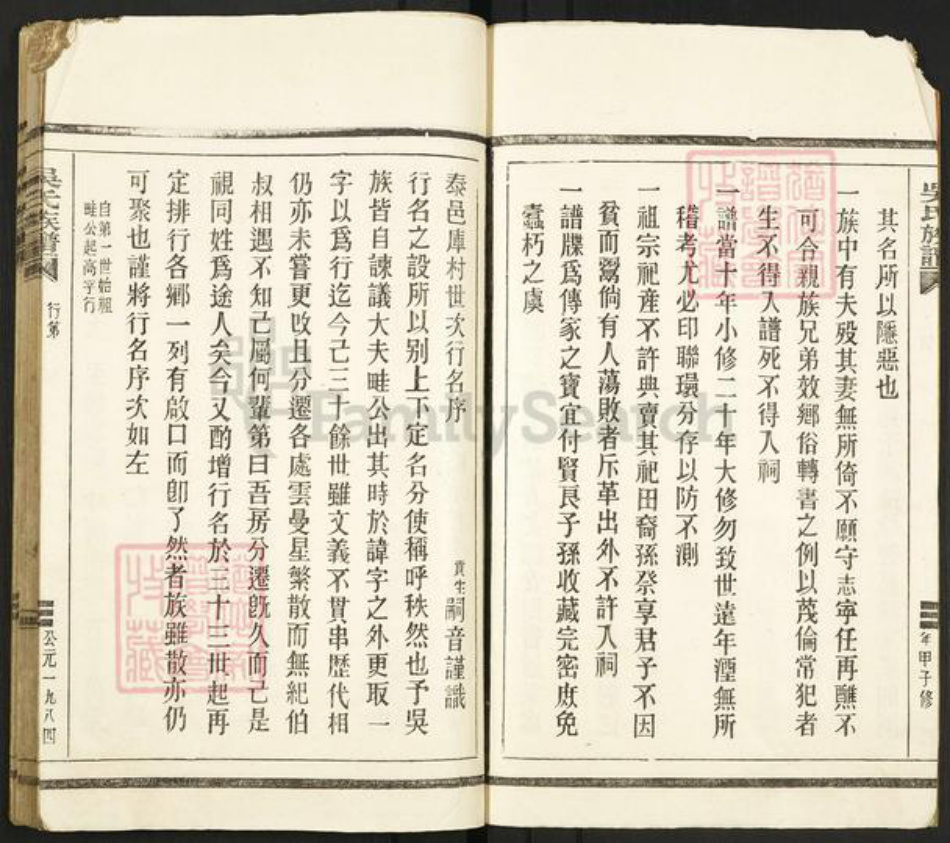 吳氏族譜
年甲子修
其名所以隱惡也
一族中有夫殁其妻無所倚不願守志寧任再醮不
可合親族兄弟效鄉俗轉書之例以蔑倫常犯者
生不得入譜死不得入祠
一譜當十年小修二十年大修勿致世遠年湮無所
稽考尤必印聯環分存以防不測
一祖宗祀產不許典賣其祀田裔孫叅享君子不因
貧而鬻倘有人蕩敗者斥革出外不許入祠
一譜牒爲傳家之寶宜付賢良子孫收藏完密庶免
蠹朽之虞
泰邑庫村世次行名序 貢生嗣音謹識
行名之設所以别上下定名分使稱呼秩然也予吳
族皆自諫議大夫畦公出其時於諱字之外更取一
字以爲行迄今己三十餘世雖文義不貫串歷代相
仍亦未嘗更改且分遷各處雲曼星繁散而無紀伯
叔相遇不知己屬何輩第曰吾房分遷旣久而己是
視同姓爲途人矣今又酌增行名於三十三世起再
定排行各鄉一列有啟口而卽了然者族雖散亦仍
可聚也謹將行名序次如左
自第一世始祖
畦公起高字行
吳氏族譜
行第
公元一九八四
FamilySearch